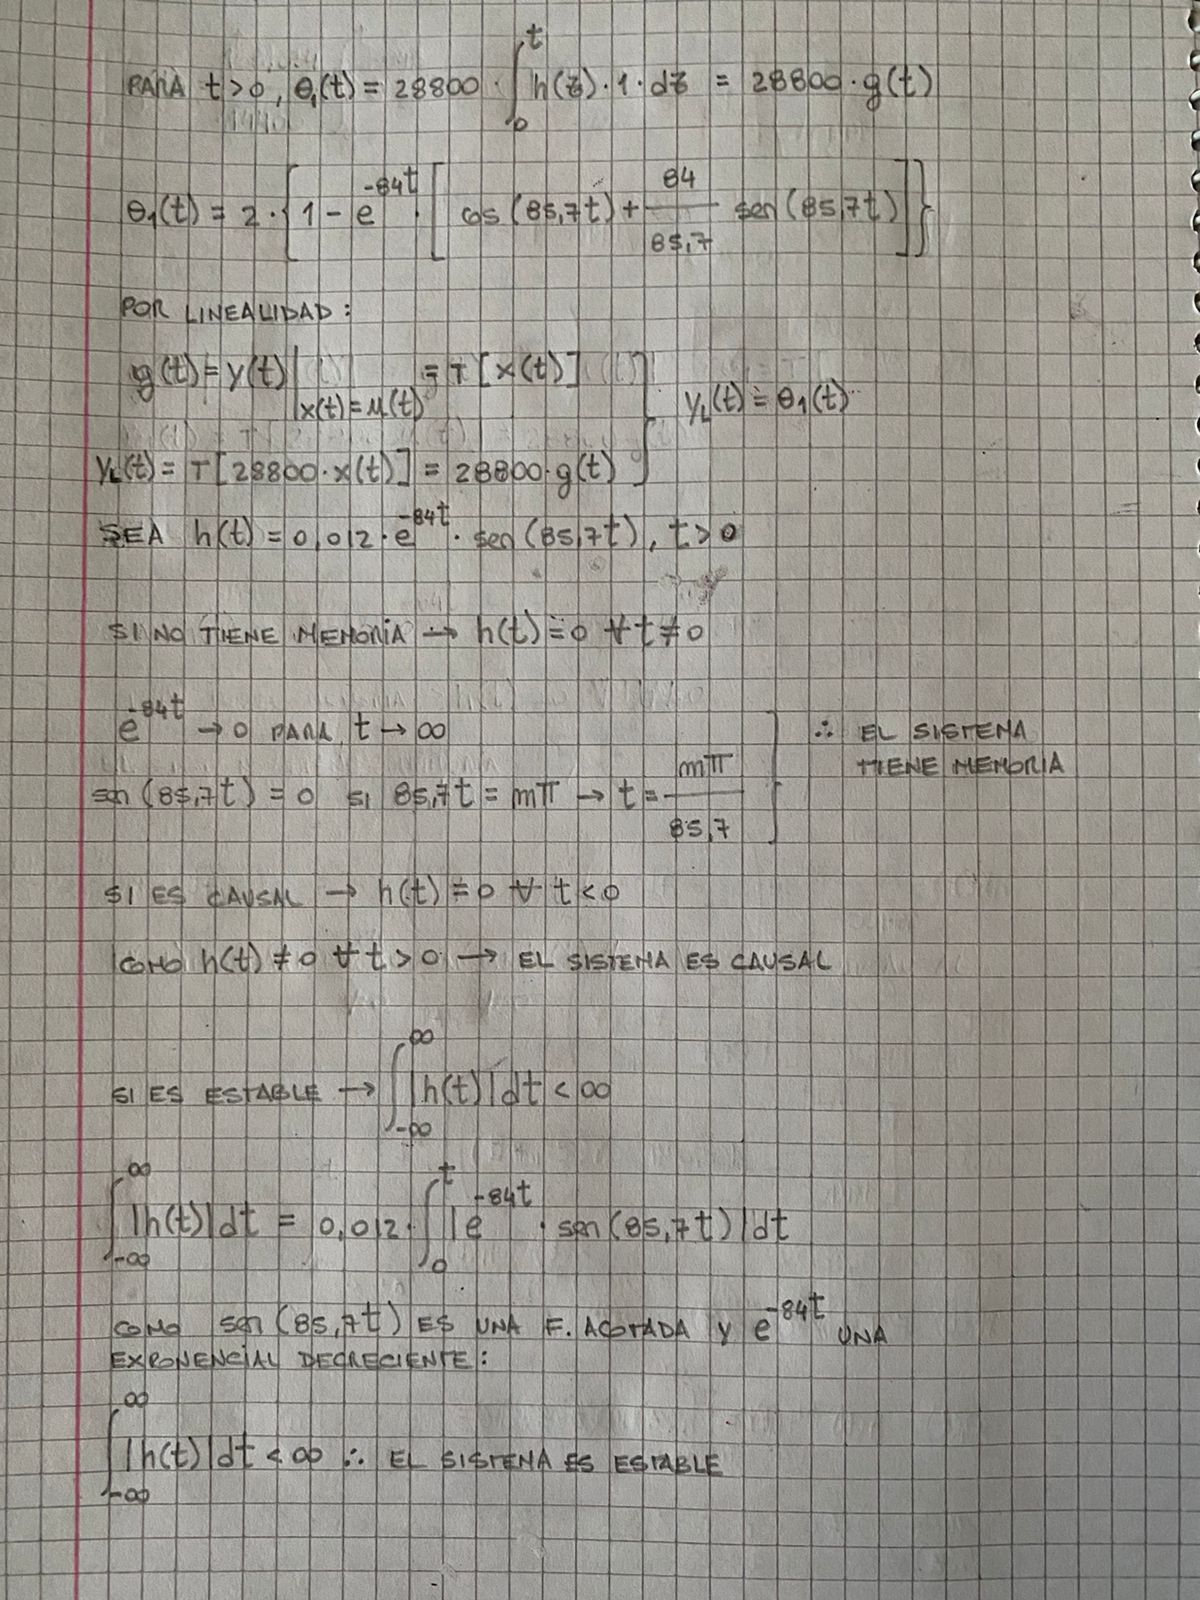 PARA t>0, θ₁(t) = 28800 · ∫₀ᵗ h(z)·1·dz = 28800·g(t)
θ₁(t) = 2·{1 - e^(-84t)·[cos(85,7t) + 84/85,7 sen(85,7t)]}
POR LINEALIDAD:
g(t) = y(t)|x(t)=μ(t) = T[x(t)]
y_L(t) = θ₁(t)
y_L(t) = T[28800·x(t)] = 28800·g(t)
SEA h(t) = 0,012·e^(-84t)·sen(85,7t), t>0
SI NO TIENE MEMORIA → h(t)=0 ∀t≠0
e^(-84t) → 0 PARA t → ∞
∴ EL SISTEMA
TIENE MEMORIA
sen(85,7t) = 0 SI 85,7t = mπ → t = mπ/85,7
SI ES CAUSAL → h(t)=0 ∀ t<0
COMO h(t)≠0 ∀t>0 → EL SISTEMA ES CAUSAL
SI ES ESTABLE → ∫_-∞^∞ |h(t)|dt < ∞
∫_-∞^∞ |h(t)|dt = 0,012·∫₀ᵗ |e^(-84t)·sen(85,7t)|dt
COMO sen(85,7t) ES UNA F. ACOTADA Y e^(-84t) UNA
EXPONENCIAL DECRECIENTE:
∫_-∞^∞ |h(t)|dt < ∞ ∴ EL SISTEMA ES ESTABLE